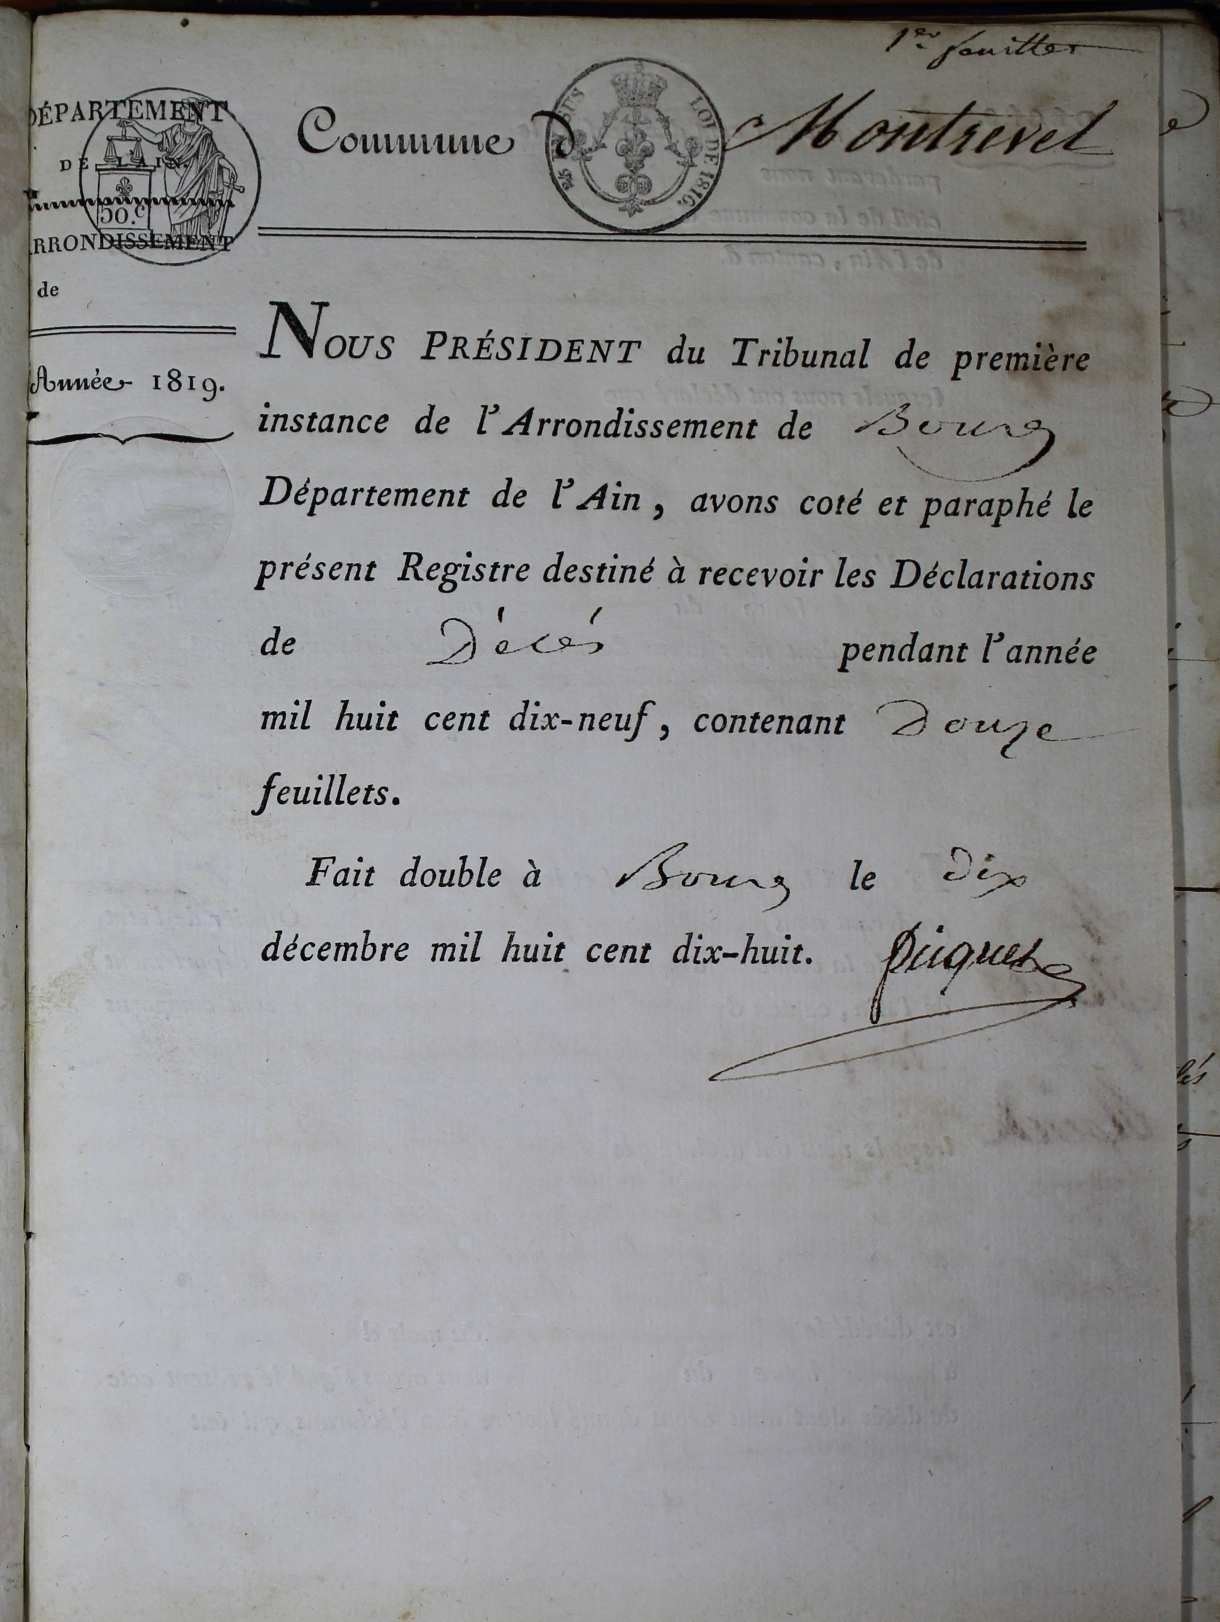 1er feuillet
DÉPARTEMENT
DE L'AIN.
50.c
ARRONDISSEMENT
de
Année 1819.
Commune de Montrevel
LOI DE 1816.
NOUS PRÉSIDENT du Tribunal de première
instance de l'Arrondissement de Bourg
Département de l'Ain, avons coté et paraphé le
présent Registre destiné à recevoir les Déclarations
de Décès pendant l'année
mil huit cent dix-neuf, contenant Douze
feuillets.
Fait double à Bourg le dix
décembre mil huit cent dix-huit. Piquet